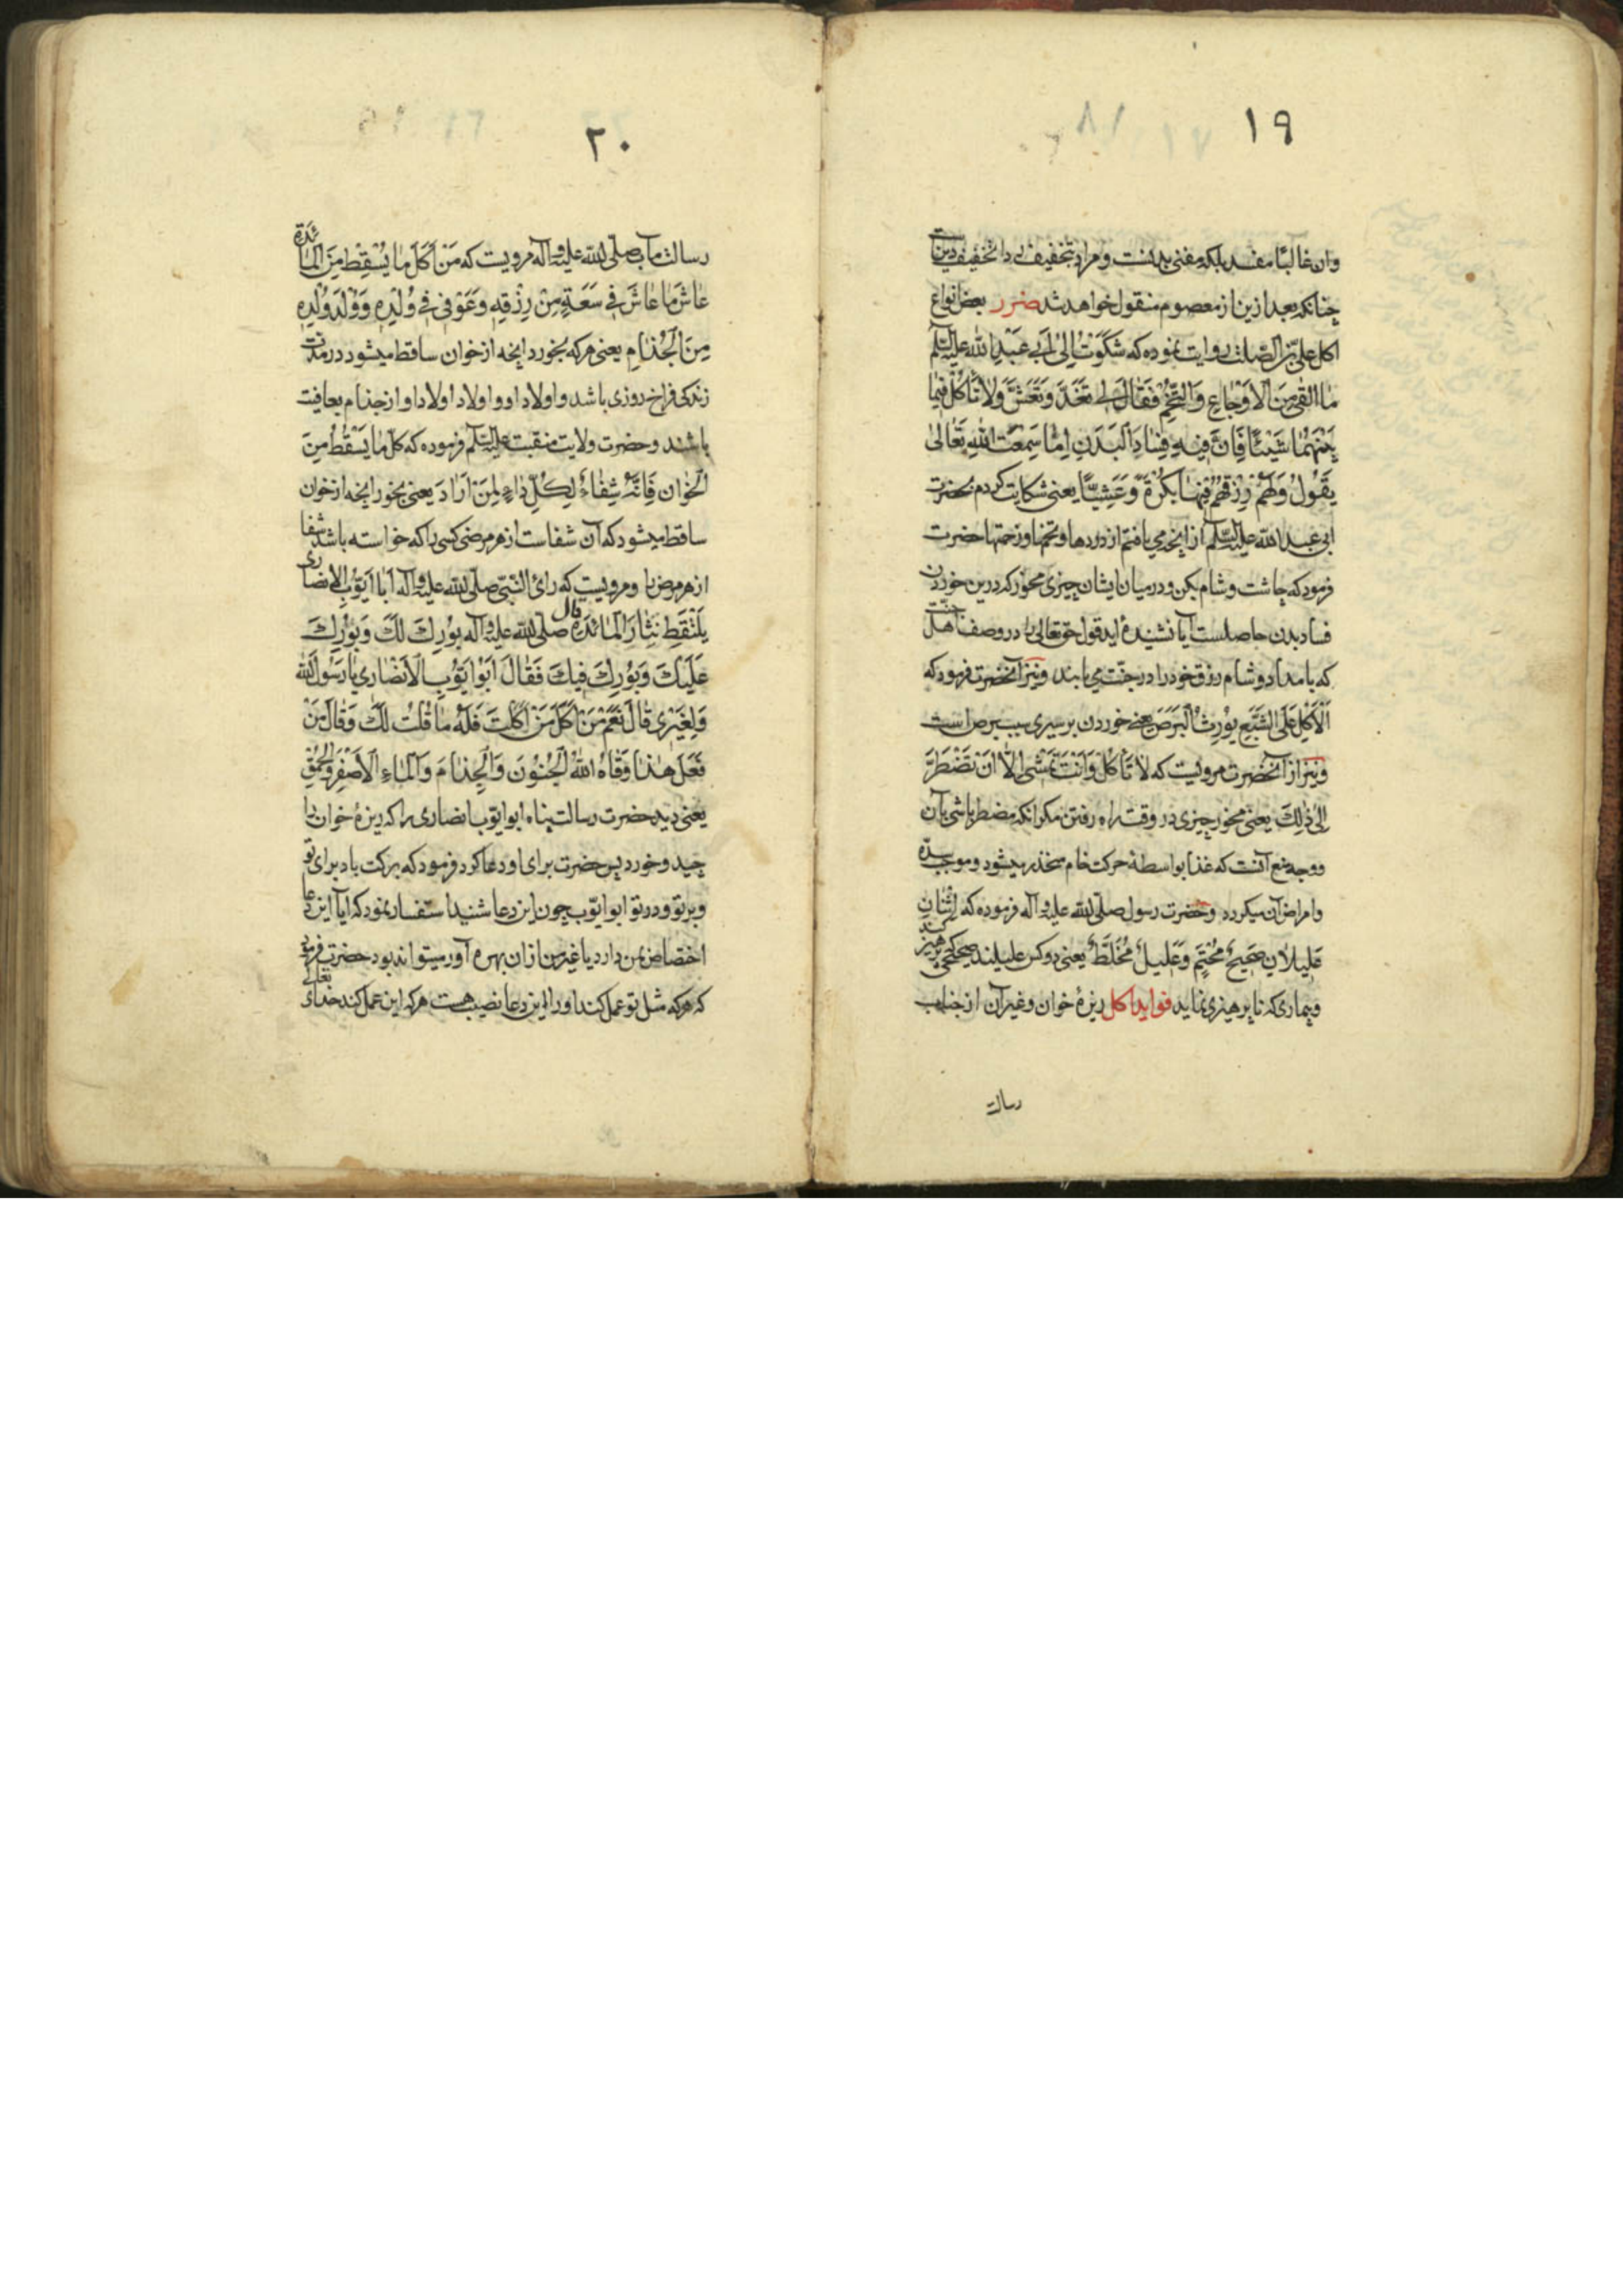 ١٩
وان غالبًا مفسد بلکه مفنی بدنست و مراد بتخفیف ردا تخفیف دین است
چنانکه بعد ازین از معصوم منقول خواهد شد ضرر بعض انواع
اکل علی بن الصلت روایت نموده که شکوت الی ابی عبد الله علیه السلم
ما القی من الاوجاع والتخم فقال لی تغد وتعش ولا تاکل فیما
بینهما شیئا فان فیه فساد البدن اما سمعت الله تعالی
یقول ولهم رزقهم فیها بکرة وعشیا یعنی شکایت کردم بحضرت
ابی عبد الله علیه السلم از آنچه می یافتم از دردها و تخمها و زحمتها حضرت
فرمود که چاشت و شام بکن و در میان ایشان چیزی مخور که درین خوردن
فساد بدن حاصلست آیا نشنیدهٔ اید قول حق تعالی را در وصف اهل جنت
که بامداد و شام رزق خود را در جنت می یابند و نیز آنحضرت فرمود که
الاکل علی الشبع یورث البرص یعنی خوردن بر سیری سبب برص است
و نیز از آنحضرت مرویست که لا تاکل وانت تمشی الا ان تضطر
الی ذلک یعنی مخور چیزی در وقت راه رفتن مکر انکه مضطر باشی بآن
و وجه منع آنست که غذا بواسطهٔ حرکت خام منحذر میشود و موجب سدّه
و امراض آن میکردد و حضرت رسول صلی الله علیه و آله فرموده که اثنان
علیلان صحیح محتم وعلیل مخلط یعنی دو کس علیلند صحیحی که پرهیز کند
و بیماری که ناپرهیزی نماید فواید اکل ریزهٔ خوان و غیر آن از جناب
رسالت
٢٠
رسالت مآب صلی الله علیه و آله مرویست که من اکل ما یسقط من المائدة
عاش ما عاش فی سعة من رزقه وعوفی فی ولده وولد ولده
من الجذام یعنی هرکه بخورد آنچه از خوان ساقط میشود در مدت
زندکی فراخ روزی باشد و اولاد او و اولاد اولاد او از جذام بعافیت
باشند و حضرت ولایت منقبت علیه السلم فرموده که کل ما یسقط من
الخوان فانه شفاء لکل داء لمن اراد یعنی بخور آنچه از خوان
ساقط میشود که آن شفاست از هر مرضی کسی را که خواسته باشد شفا
از هر مرض را و مرویست که رای النبی صلی الله علیه و آله ابا ایوب الانصاری
یلتقط نثار المائدة قال صلی الله علیه و آله بورک لک وبورک
علیک وبورک فیک فقال ابوا یوب الانصاری یا رسول الله
ولغیری قال نعم من اکل من اکلت فله ما قلت لک وقال من
فعل هذا وقاه الله الجنون والجذام والماء الاصفر والحمق
یعنی دید حضرت رسالت پناه ابوایوب انصاری را که ریزهٔ خوان را
چید و خورد پس حضرت برای او دعا کرد فرمود که برکت باد برای تو
و بر تو و در تو ابوایوب چون این دعا شنید استفسار نمود که آیا این دعا
اختصاص بمن دارد یا غیر من از ان بهره آور میتواند بود حضرت فرمود
که هر که مثل تو عمل کند او را این دعا نصیب هست هرکه این عمل کند خدای تعالی